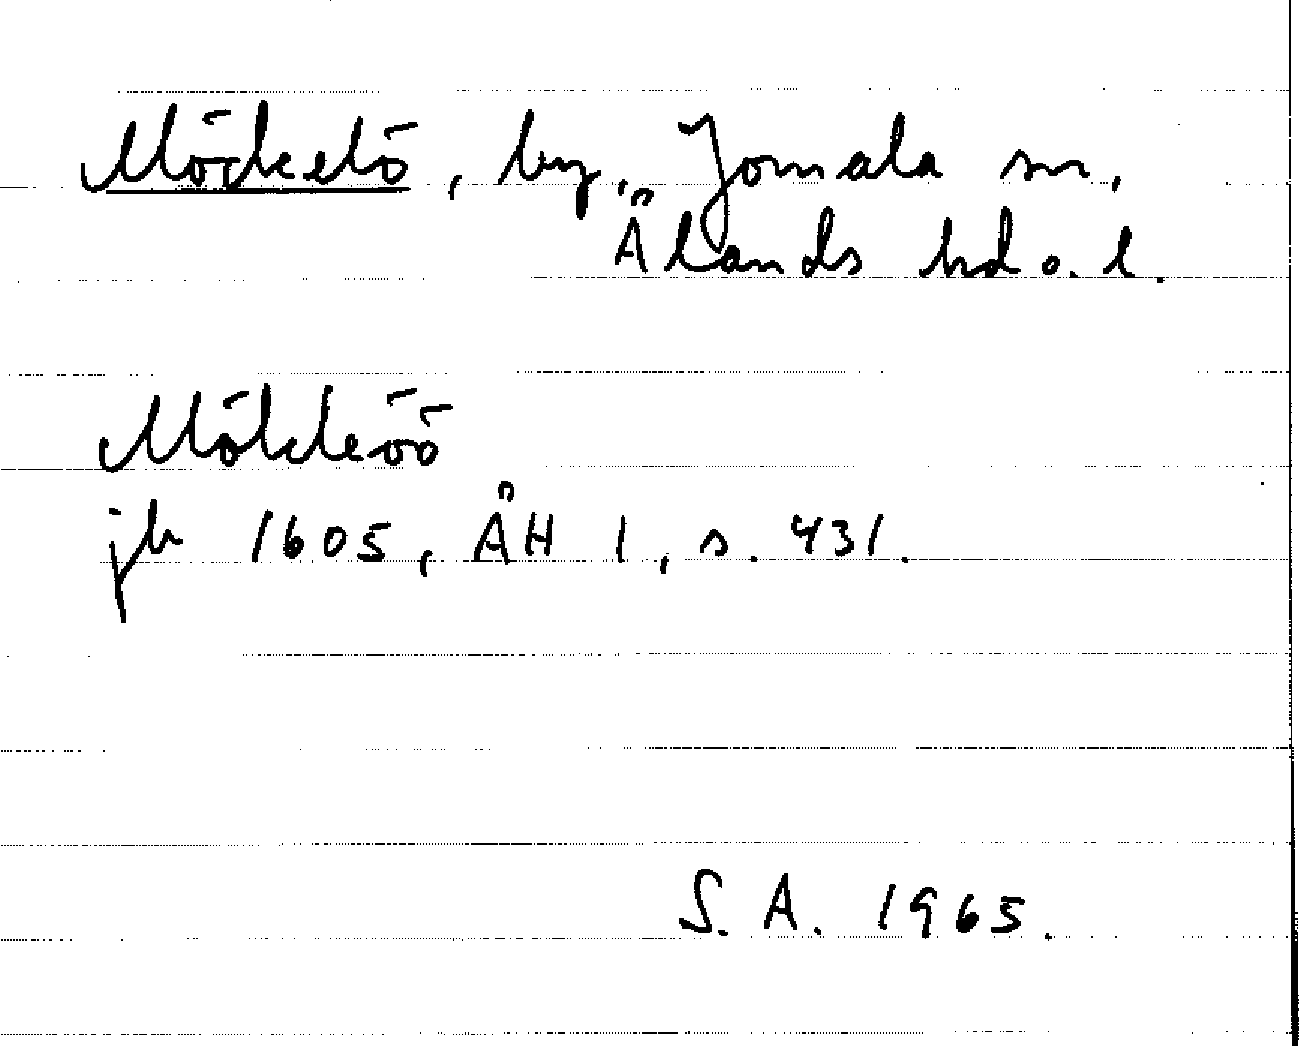 Möckelö, by, Jomala sn,
Ålands hd o. l.
Mökleöö
jb 1605, ÅH 1, s. 431.
S. A. 1965.